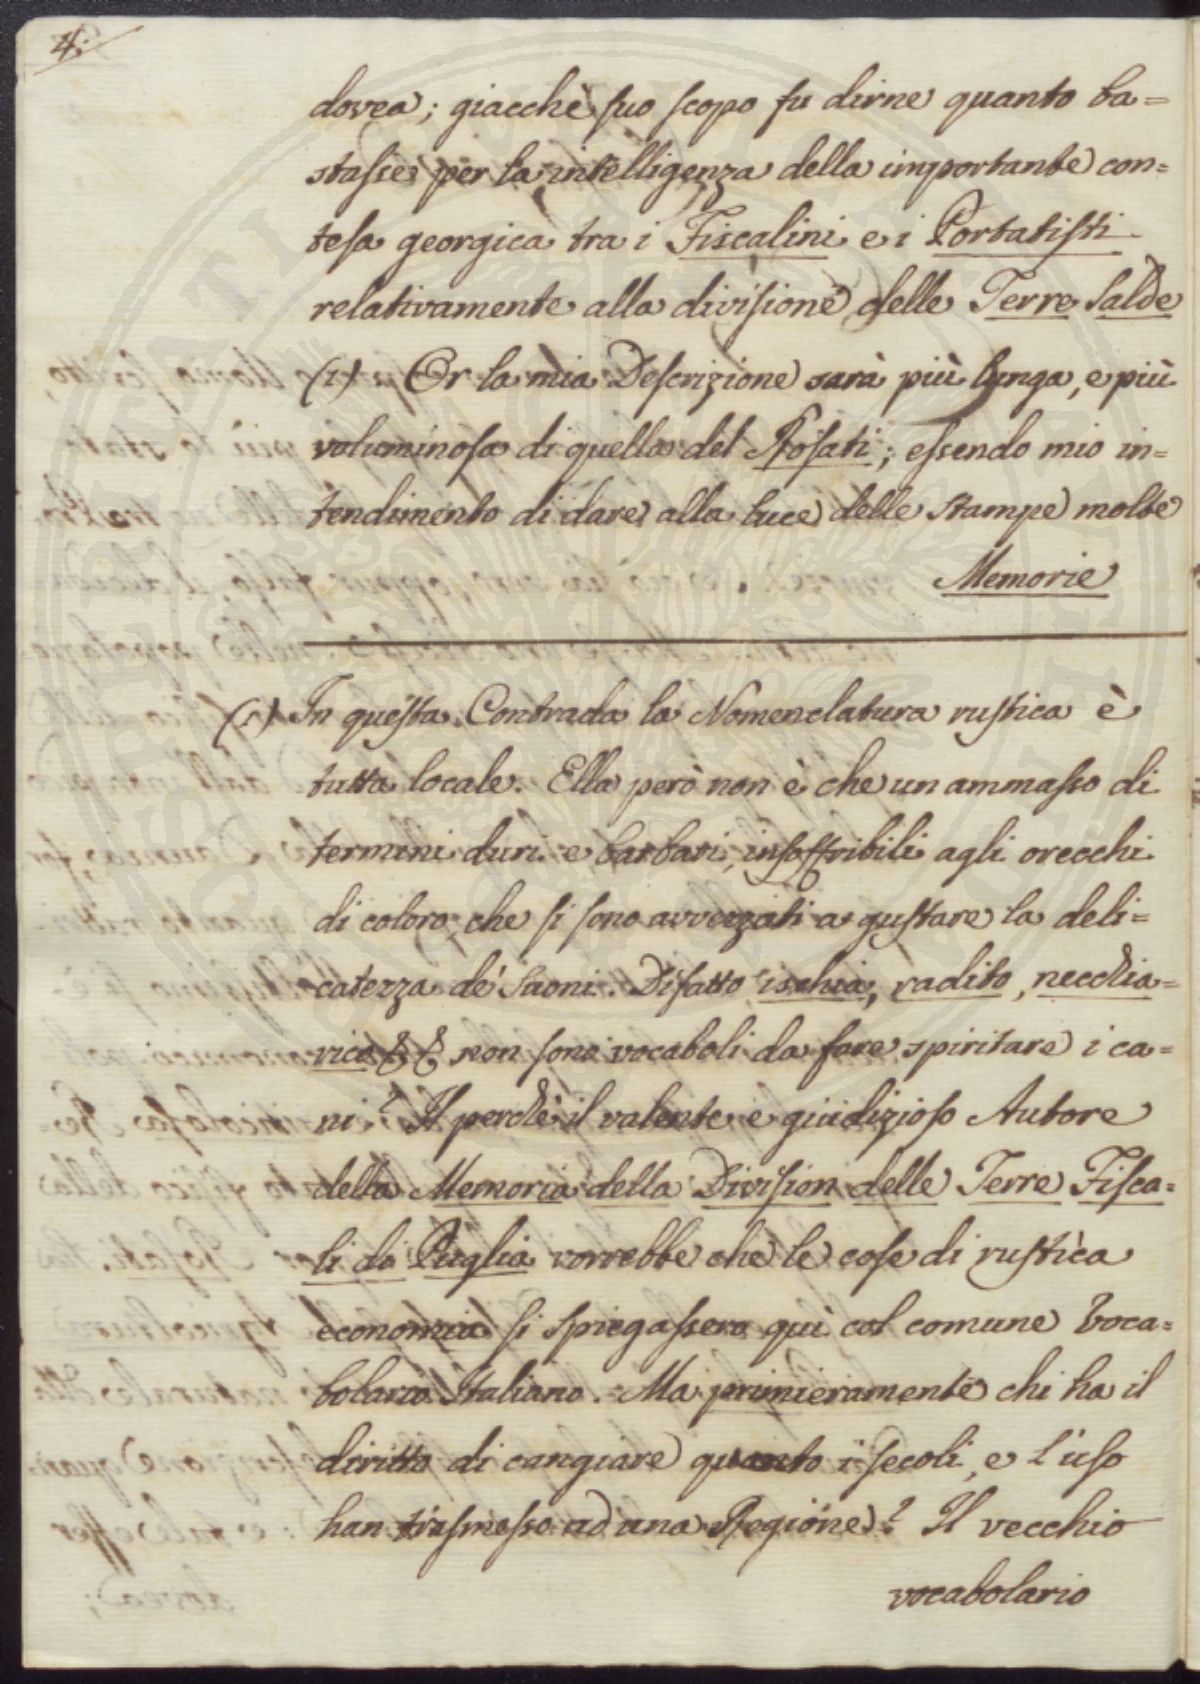 4.
dovea; giacchè suo scopo fu dirne quanto ba=
stasse per la intelligenza della importante con=
tesa georgica tra i Fiscalini e i Portatisti
relativamente alla divisione delle Terre Salde
(1) Or la mia Descrizione sarà più lunga, e più
voluminosa di quella del Rosati; essendo mio in=
tendimento di dare alla luce delle stampe molte
Memorie
(1) In questa Contrada la Nomenclatura rustica è
tutta locale. Ella però non è che un ammasso di
termini duri e barbari, insoffribili agli orecchi
di coloro, che si sono avvezzati a gustare la deli=
catezza de' suoni. Difatto ischia, radito, necchia=
rico &c &c non sono vocaboli da fare spiritare i ca=
ni? Il perchè il valente e giudizioso Autore
della Memoria della Division delle Terre Fisca=
li di Puglia vorrebbe che le cose di rustica
economia si spiegassero quì col comune Voca=
bolario Italiano. Ma primieramente chi ha il
diritto di cangiare quanto i secoli, e l'uso
han trasmesso ad una Regione? Il vecchio
vocabolario